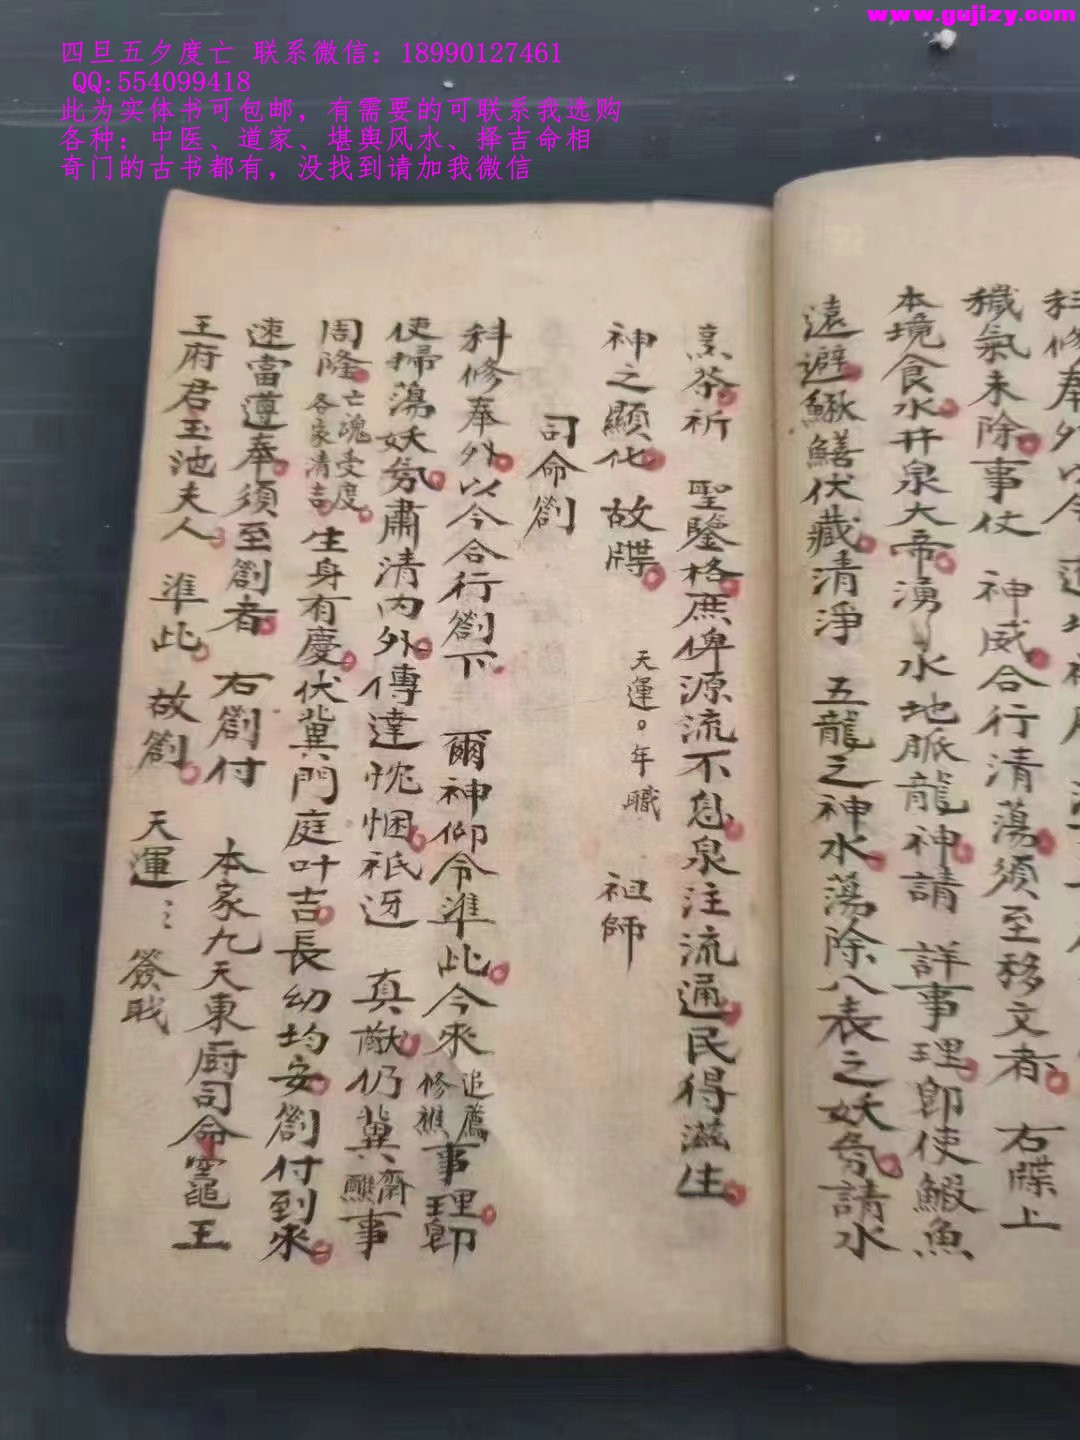 www.gujizy.com
四旦五夕度亡 联系微信：18990127461
QQ:554099418
此为实体书可包邮，有需要的可联系我选购
各种：中医、道家、堪舆风水、择吉命相
奇门的古书都有，没找到请加我微信
科修奉外以今
穢氣未除事仗 神威合行清蕩須至移文者 右牒上
本境食水井泉大帝湧水地脈龍神請 詳事理即使鰕魚
遠避鰍鱔伏藏清淨 五龍之神水蕩除八表之妖氛請水
烹茶祈 聖鑒格庶俾源流不息泉注流通民得滋生
神之顯化 故牒 天運。年職 祖師
司命劄
科修奉外以今合行劄下 爾神仰令準此今來 追薦 修醮 事理即
使掃蕩妖氛肅清內外傳達悃祇迓 真猷仍冀 齋 醮 事
周隆 亡魂受度 各家清吉 生身有慶伏冀門庭叶吉長幼均安劄付到來
速當遵奉須至劄者 右劄付 本家九天東厨司命竈王
王府君玉池夫人 準此 故劄 天運 簽戝